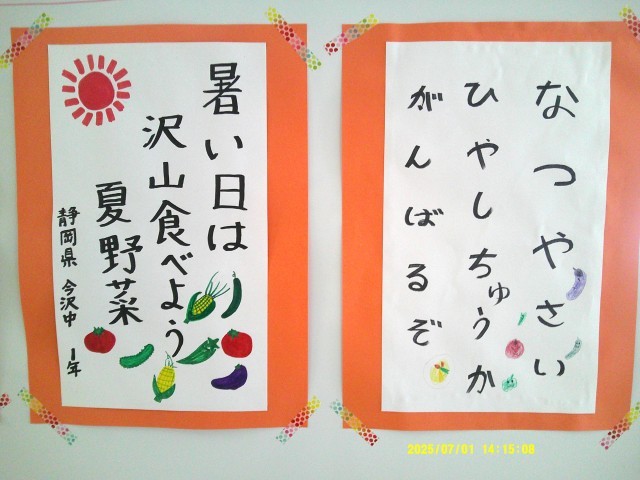 暑い日は
沢山食べよう
夏野菜
静岡県 今沢中 1年
なつやさい
ひやしちゅうか
がんばるぞ
2025/07/01 14:15:08